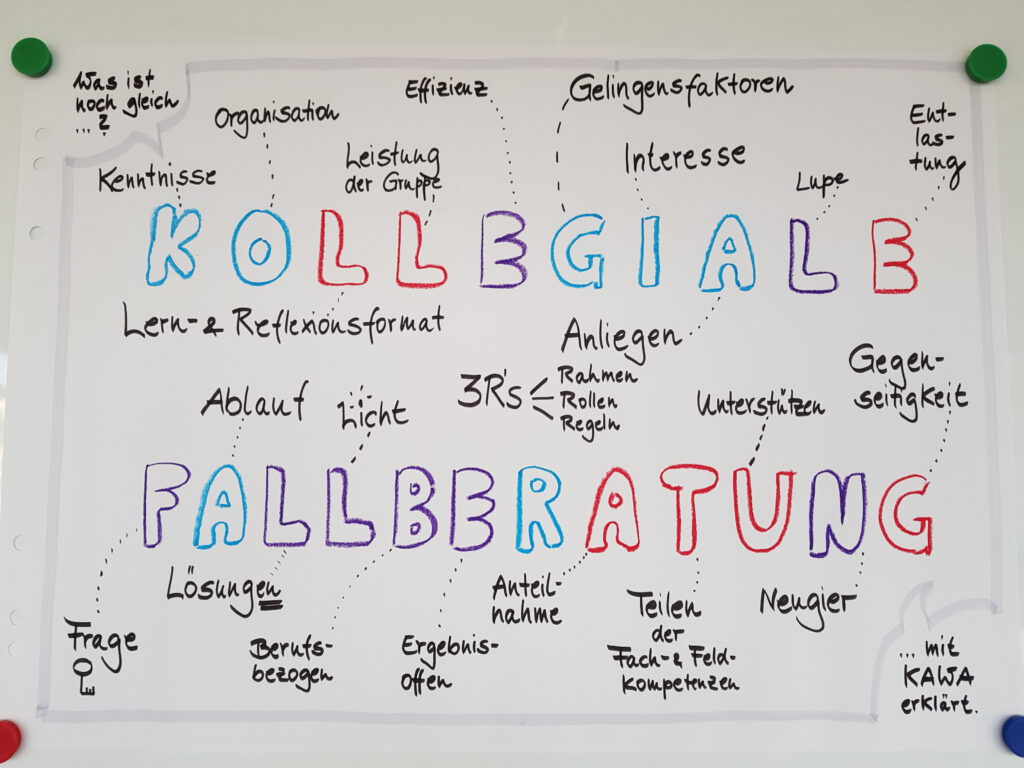 Was ist
noch gleich
... ?
Kenntnisse
Organisation
Leistung
der Gruppe
Effizienz
Gelingensfaktoren
Interesse
Lupe
Ent-
las-
tung
KOLLEGIALE
Lern- & Reflexionsformat
Anliegen
3R's
Rahmen
Rollen
Regeln
Ablauf
Licht
Unterstützen
Gegen-
seitigkeit
FALLBERATUNG
Frage
Lösungen
Berufs-
bezogen
Ergebnis-
offen
Anteil-
nahme
Teilen
der
Fach- & Feld-
kompetenzen
Neugier
... mit
KAWA
erklärt.